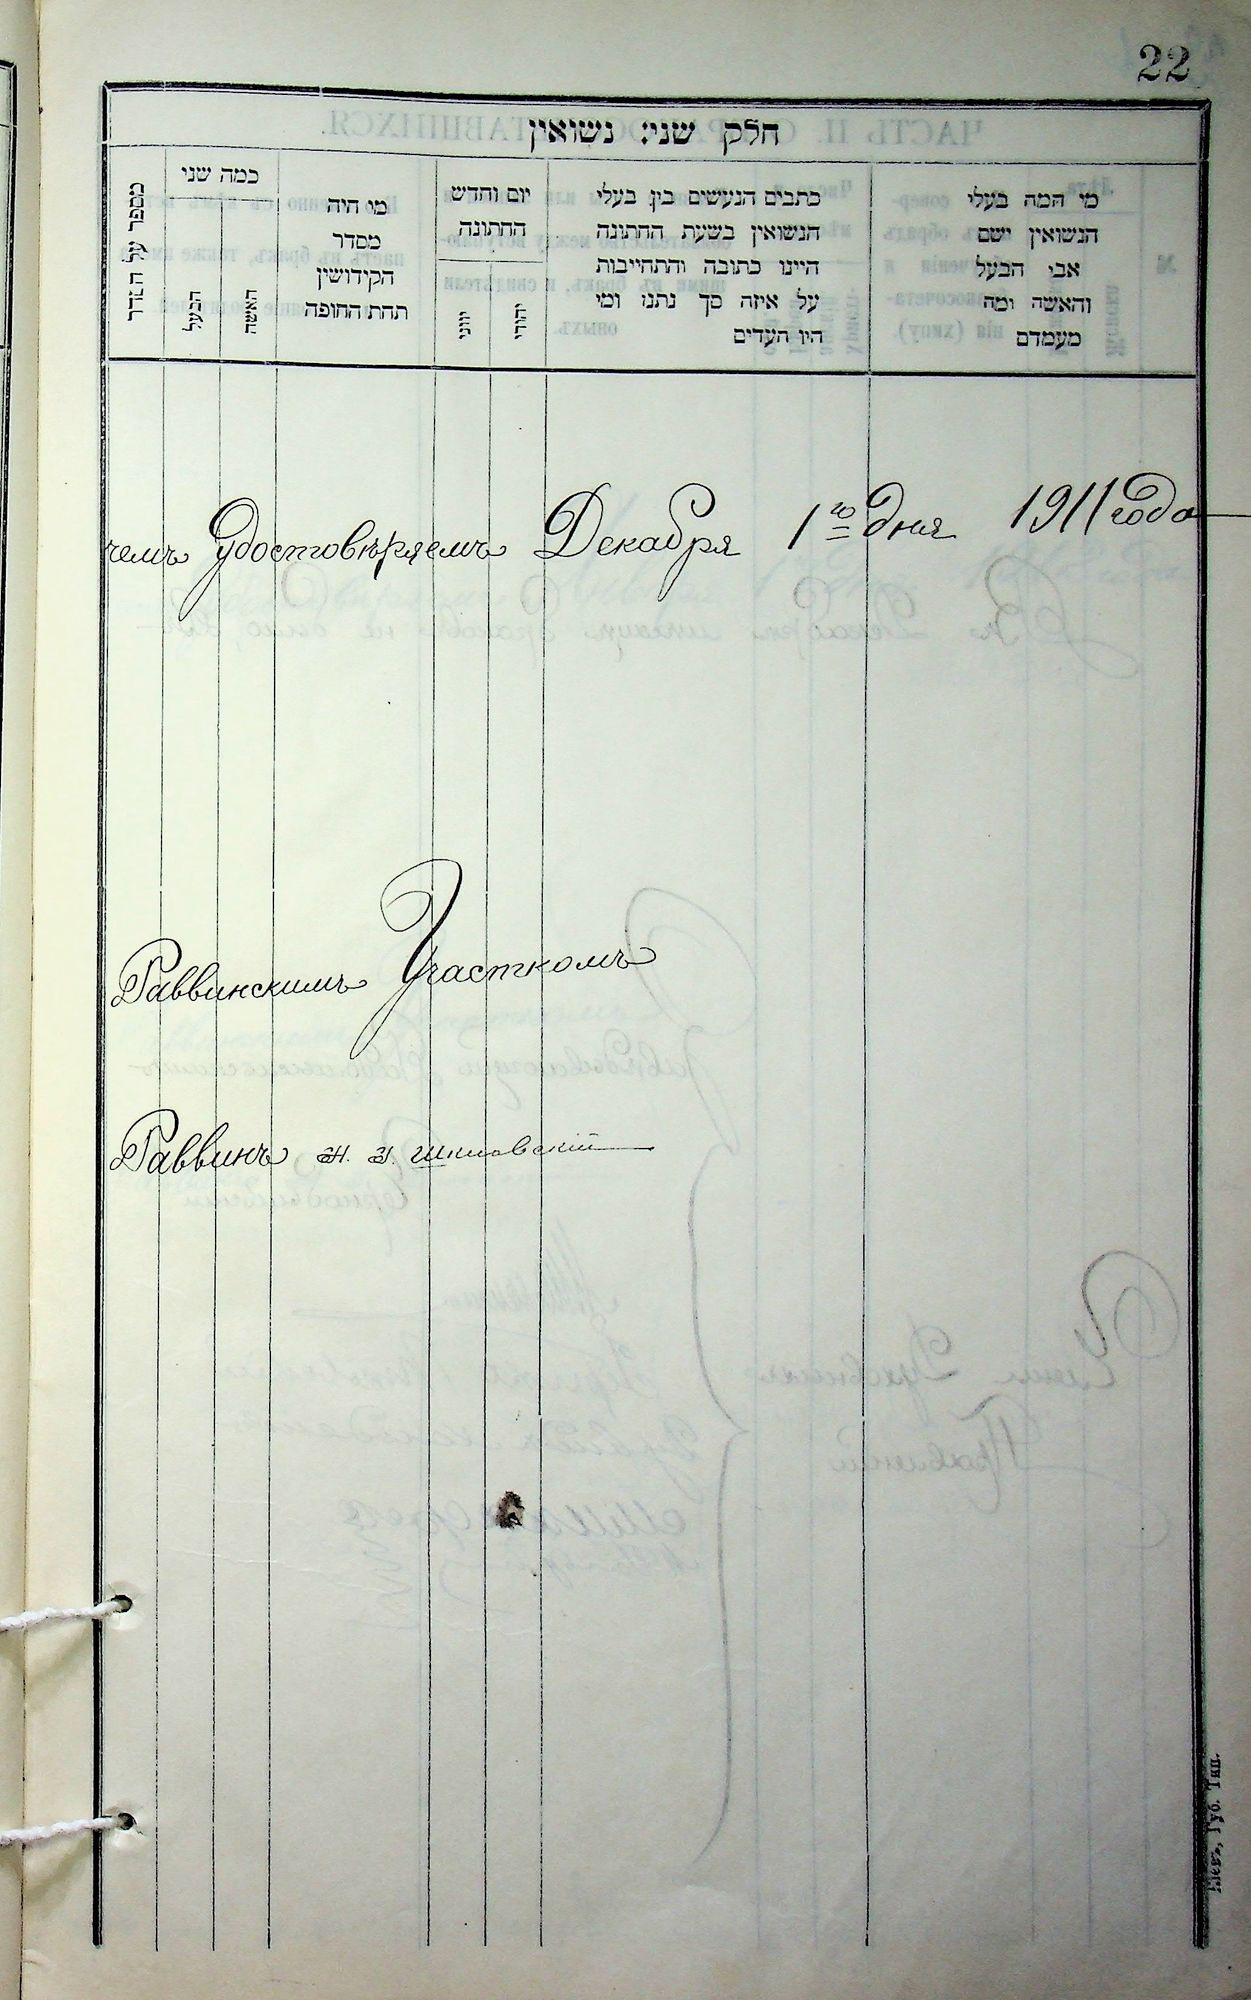 22
חלק שני: נשואין
מי המה בעלי
הנשואין ושם
אבי הבעל
והאשה ומה
מעמדם
כתבים הנעשים בין בעלי
הנשואין בשעת החתונה
היינו כתובה והתחייבות
על איזה סך נתנו ומי
היו העדים
יום וחדש
החתונה
יהודי
יוני
מי היה
מסדר
הקידושין
תחת החופה
כמה שני
האשה
הבעל
מספר על הסדר
чемъ удостовѣряемъ Декабря 1го дня 1911 года
Раввинскимъ Участкомъ
Раввинъ
Кіевъ, Губ. Тип.